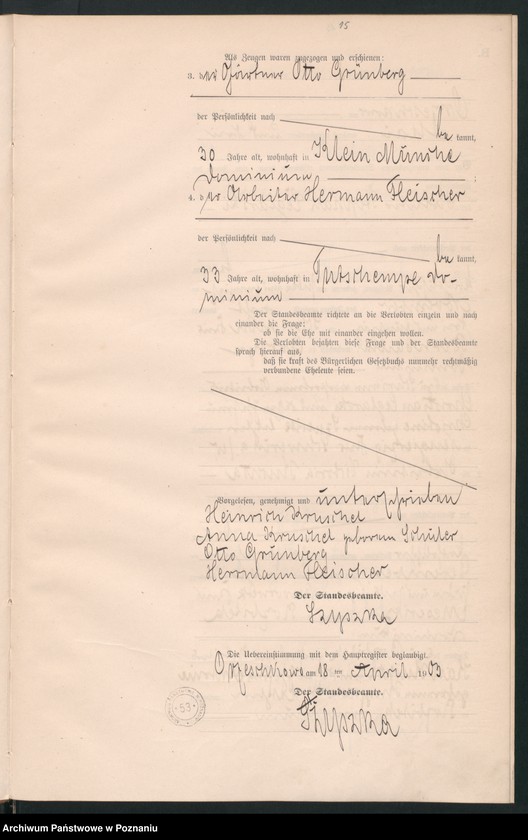 15
Als Zeugen waren zugezogen und erschienen:
3. der Gärtner Otto Grünberg
der Persönlichkeit nach
be kannt,
30 Jahre alt, wohnhaft in Klein Munche
Dominium ;
4. der Arbeiter Hermann Fleischer
der Persönlichkeit nach
be kannt,
33 Jahre alt, wohnhaft in Tutschempe Do-
minium
Der Standesbeamte richtete an die Verlobten einzeln und nach
einander die Frage:
ob sie die Ehe mit einander eingehen wollen.
Die Verlobten bejahten diese Frage und der Standesbeamte
sprach hierauf aus,
daß sie kraft des Bürgerlichen Gesetzbuchs nunmehr rechtmäßig
verbundene Eheleute seien.
Vorgelesen, genehmigt und unterschrieben
Heinrich Kruschel
Anna Kruschel geborene Schuler
Otto Grünberg
Herrmann Fleischer
Der Standesbeamte.
Szyszka
Die Uebereinstimmung mit dem Hauptregister beglaubigt.
Opzeschkowo am 18 ten April 1903
Der Standesbeamte.
Szyszka
53
Archiwum Państwowe w Poznaniu